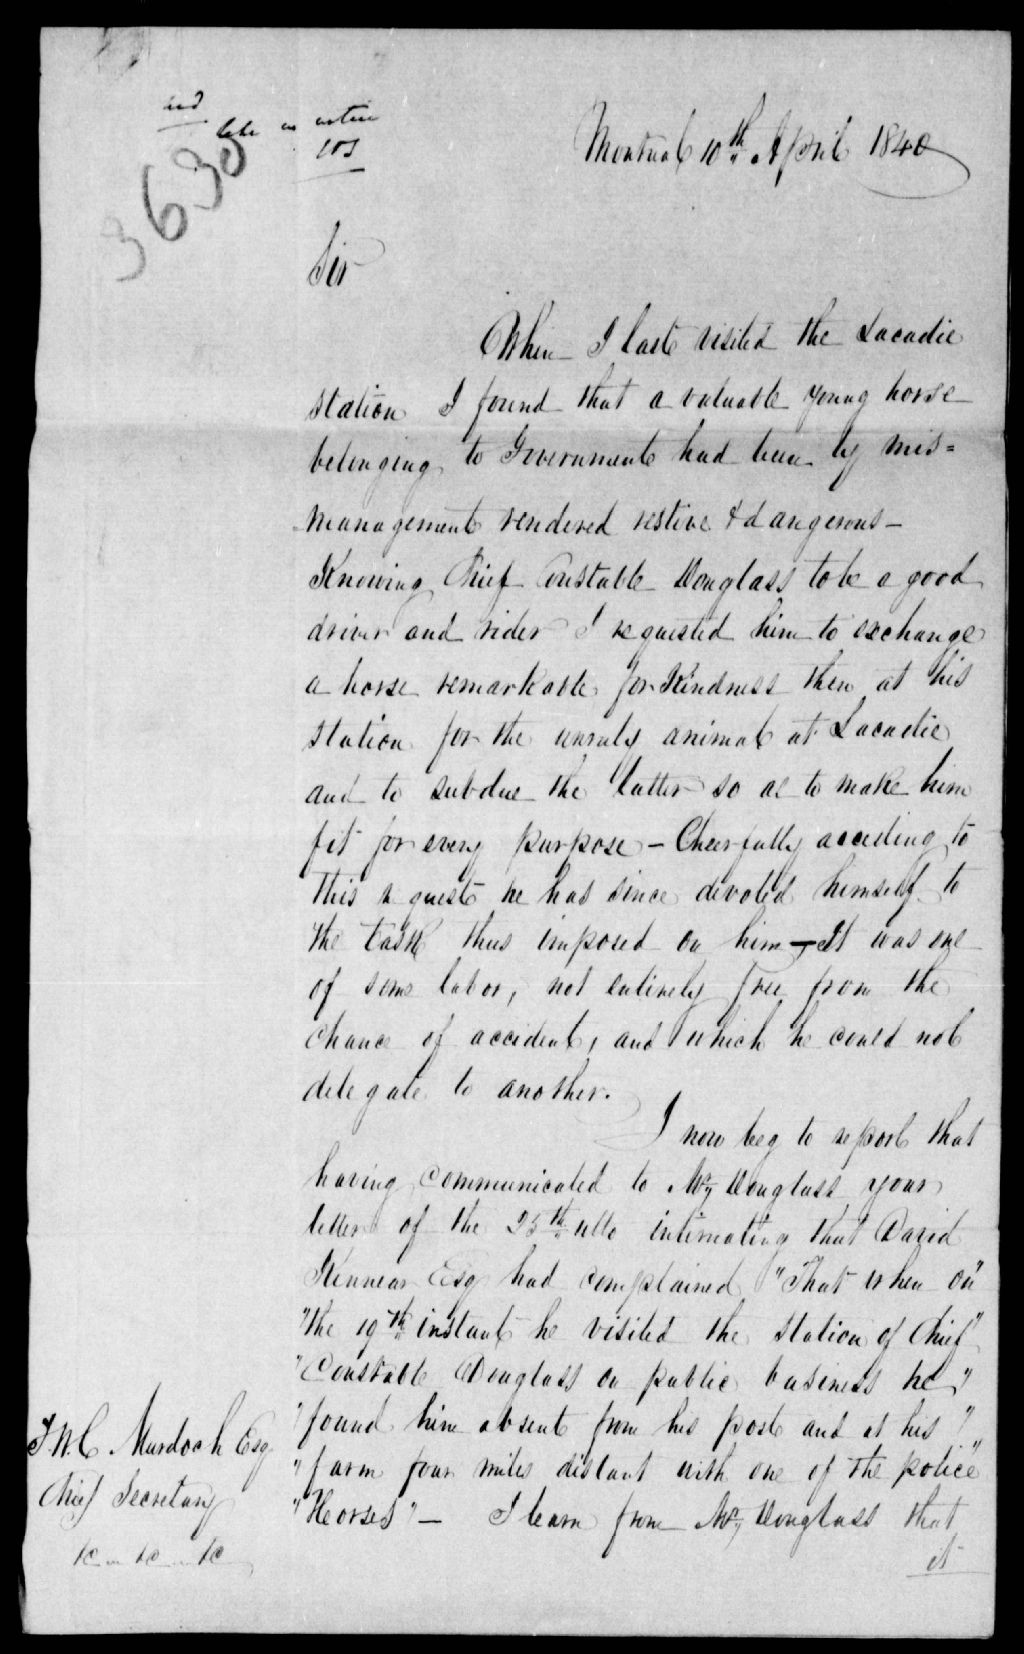 3630
Montreal 10th April 1840
Sir
When I last visited the Lacadie
station I found that a valuable young horse
belonging to Government had been by mis=
management rendered restive & dangerous —
Knowing Chief Constable Douglass to be a good
driver and rider I requested him to exchange
a horse remarkable for kindness then at his
station for the unruly animal at Lacadie
and to subdue the latter so as to make him
fit for every purpose — Cheerfully acceding to
this request he has since devoted himself to
the task thus imposed on him — It was one
of some labor, not entirely free from the
chance of accident, and which he could not
delegate to another.
I now beg to report that
having communicated to Mr Douglass your
letter of the 25th ulto intimating that David
Kinnear Esq had complained "That when on"
"the 19th instant he visited the station of Chief"
"Constable Douglass on public business he"
"found him absent from his post and at his"
"farm four miles distant with one of the police"
"Horses" — I learn from Mr Douglass that
it
T.W.C. Murdoch Esq
Chief Secretary
&c &c &c